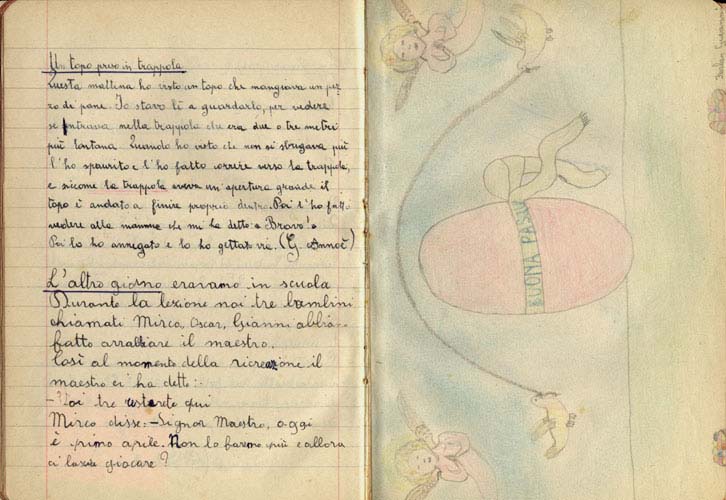 Un topo preso in trappola
Questa mattina ho visto un topo che mangiava un pez
zo di pane. Io stavo lì a guardarlo, per vedere
se entrava nella trappola che era due o tre metri
più lontana. Quando ho visto che non si sbrigava più
l'ho spaurito e l'ho fatto correre verso la trappola,
e sicome la trappola aveva un'apertura grande il
topo è andato a finire proprio dentro. Poi l'ho fatto
vedere alla mamma che mi ha detto: « Bravo! »
Poi lo ho annegato e lo ho gettato via. (G.
L'altro giorno eravamo in scuola
Durante la lezione noi tre bambini
chiamati Mirco, Oscar, Gianni abbia-
fatto arrabbiare il maestro.
Così al momento della ricreazione il
maestro ci ha detto:-
-Voi tre restate qui
Mirco disse:-Signor Maestro, oggi
è primo aprile. Non lo faremo più e allora
ci lascia giocare?
BUONA PASQUA